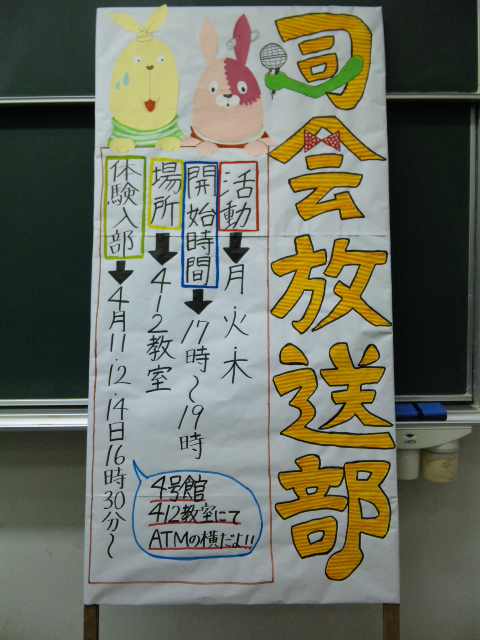 司会放送部
活動→月・火・木
開始時間→17時〜19時
場所→4-2教室
体験入部→4月11・12・14日16時30分〜
4号館
412教室にて
ATMの横だよ!!